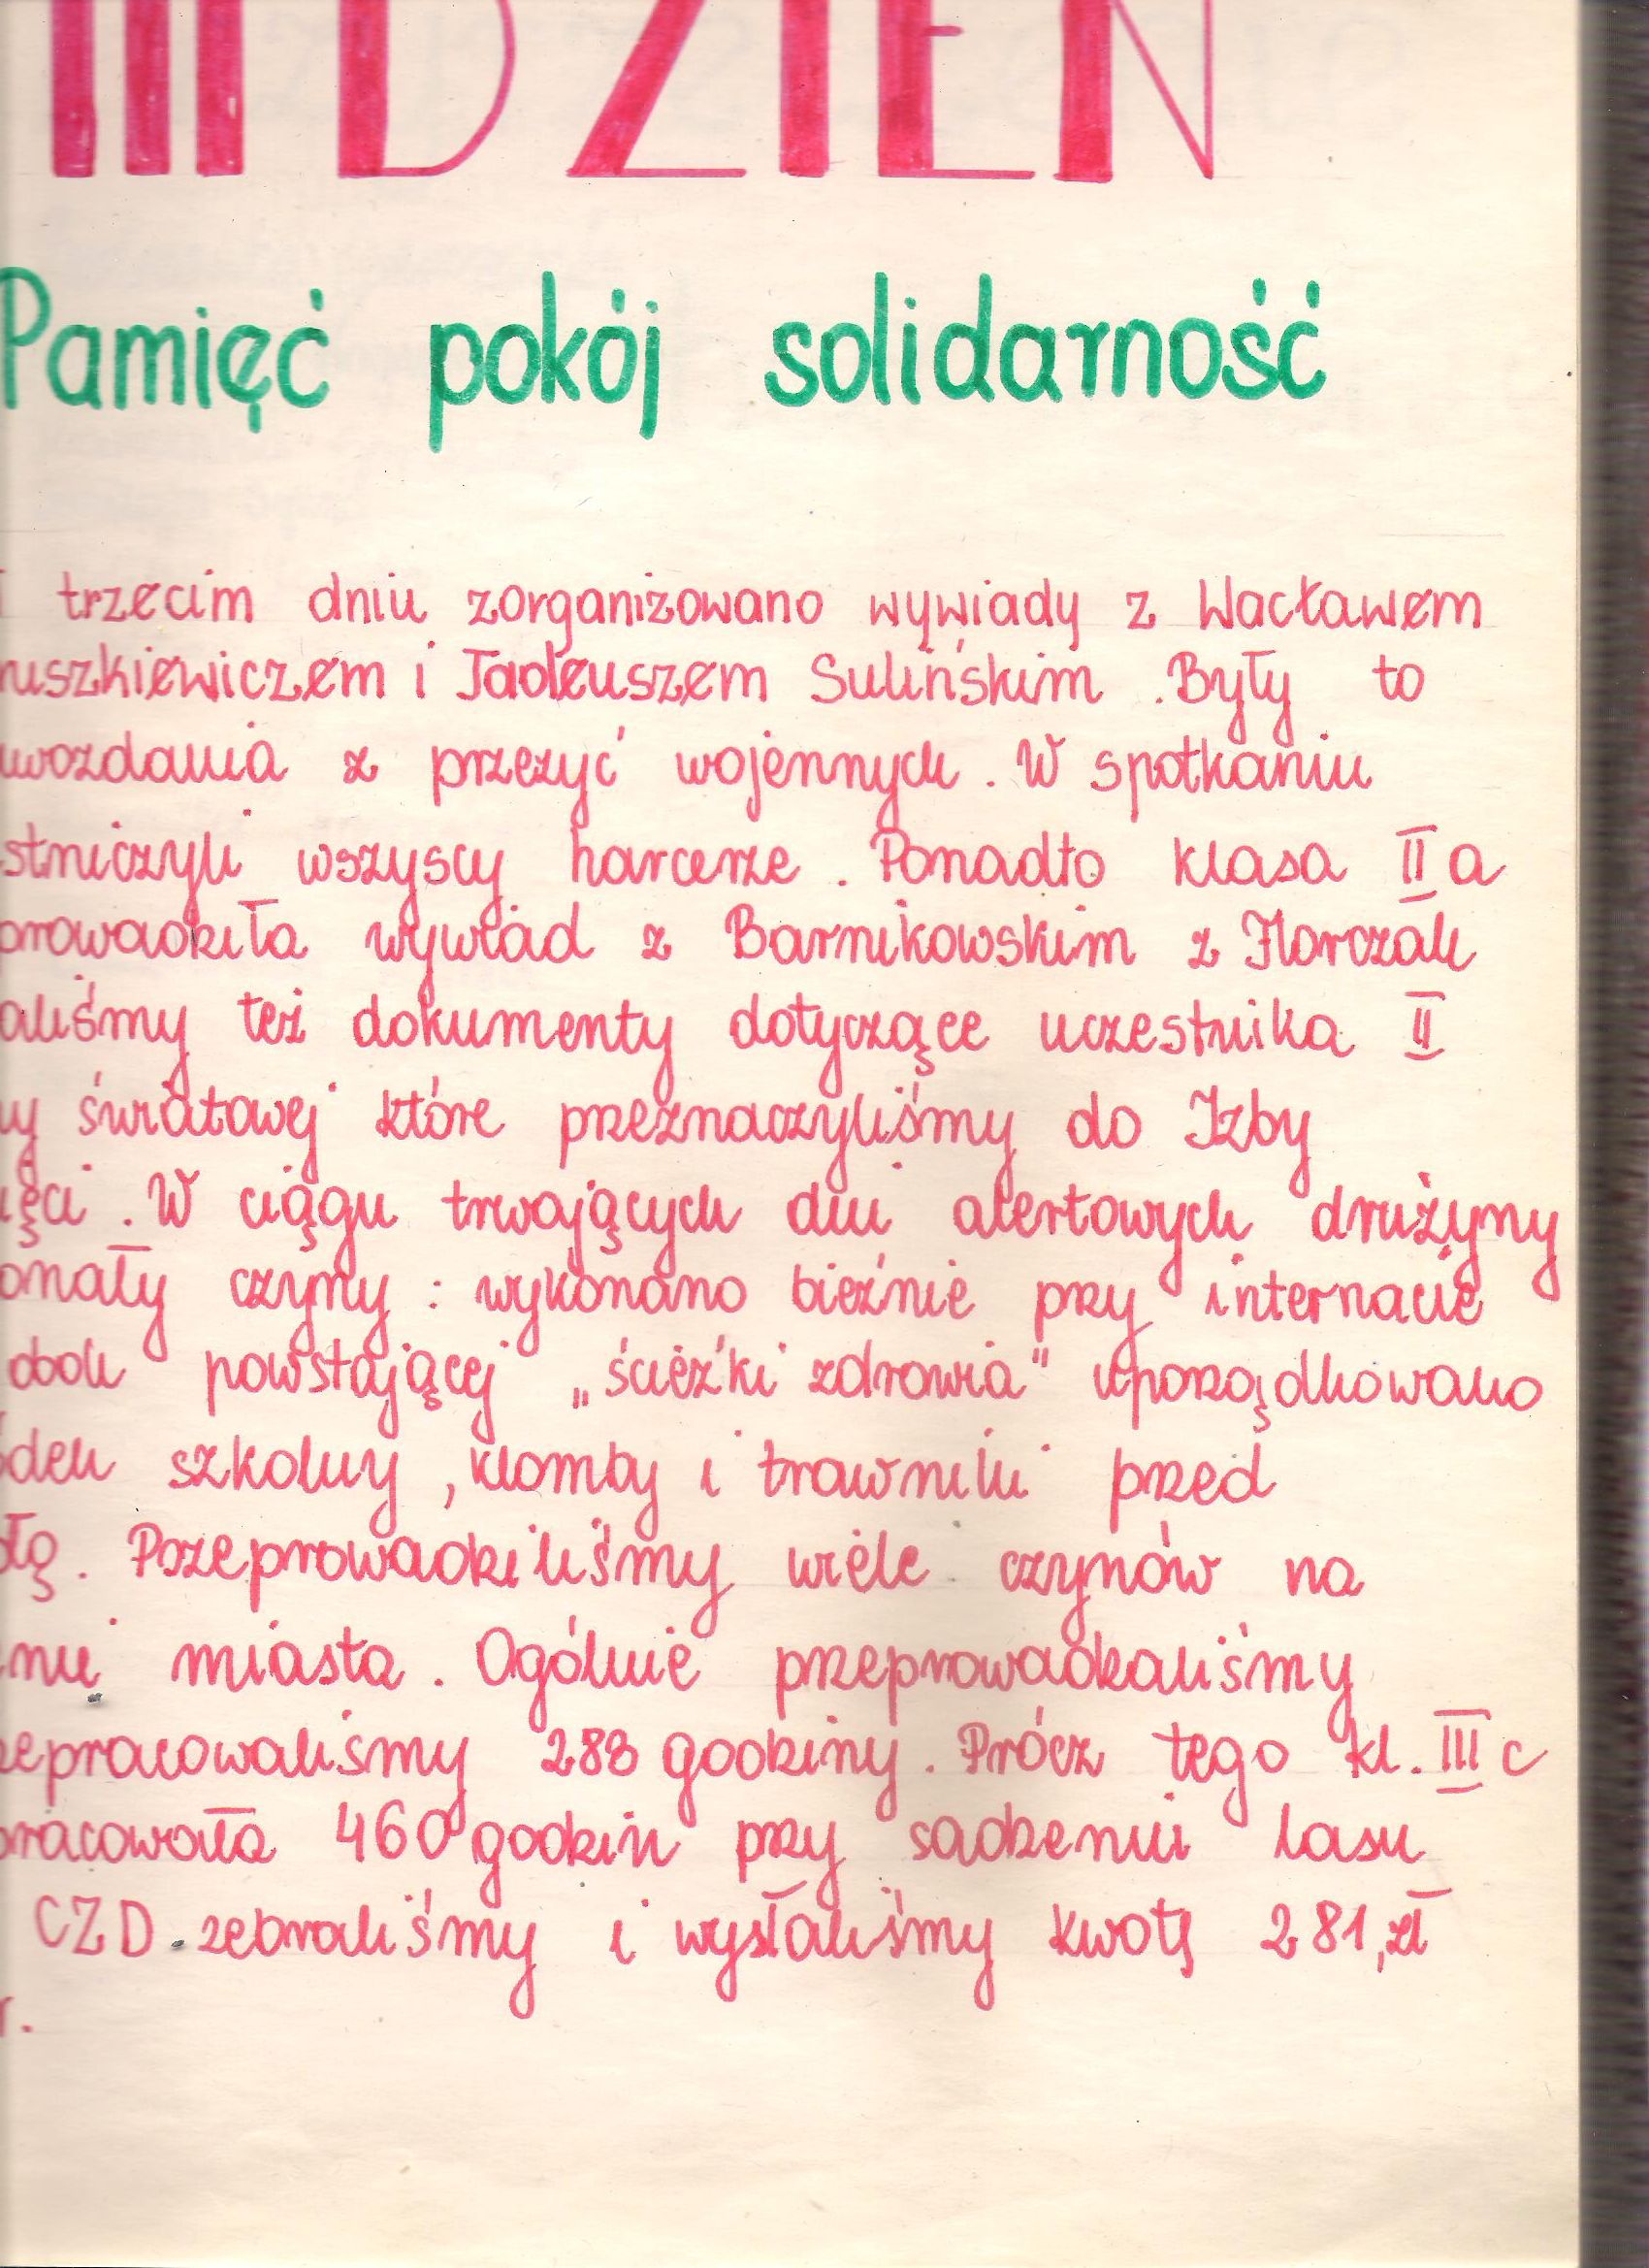 III DZIEŃ
Pamięć pokój solidarność
trzecim dniu zorganizowano wywiady z Wacławem
uszkiewiczem i Tadeuszem Sulińskim. Były to
wozdania z przeżyć wojennych. W spotkaniu
stniczyli wszyscy harcerze. Ponadto klasa II a
prowadziła wywiad z Barnikowskim z Florczak
aliśmy też dokumenty dotyczące uczestnika II
ny światowej które przeznaczyliśmy do Izby
ięci. W ciągu trwających dni alertowych drużyny
onały czyny: wykonano bieżnie przy internacie
obok powstającej „ścieżki zdrowia" uporządkowano
ódek szkolny, klomby i trawniki przed
łą. Przeprowadziliśmy wiele czynów na
nie miasta. Ogólnie przeprowadzaliśmy
zepracowaliśmy 288 godziny. Prócz tego kl. III c
pracowała 460 godzin przy sadzeniu lasu
CZD. zebraliśmy i wysłaliśmy kwotę 281,zł
r.